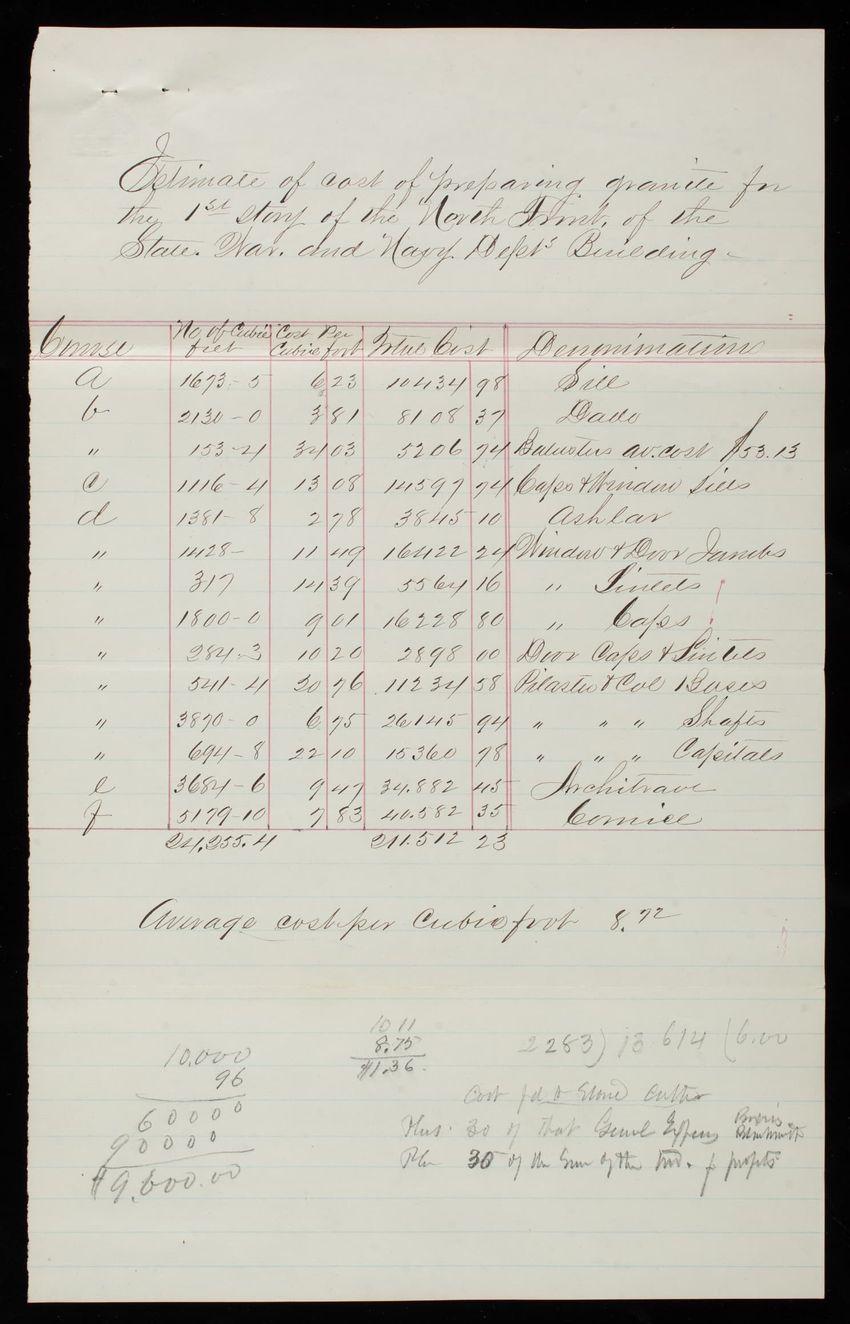 Estimate of cost of preparing granite for
the 1st story of the North Front, of the
State. War. and Navy. Dept's Building-
Course No of Cubic feet Cost Per Cubic foot Total Cost Denomination
a 1673-5 6 23 10434 98 Sill
b 2130-0 3 81 8108 37 Dado
" 153-4 34 03 5206 74 Balusters av. cost $53.13
c 1116-4 13 08 14597 74 Caps & Window Sills
d 1381-8 2 78 3845 10 Ashlar
" 1428- 11 49 16422 24 Window & Door Jambs
" 317 14 39 5564 16 " Lintels
" 1800-0 9 01 16228 80 " Caps
" 284-3 10 20 2898 00 Door Caps & Lintels
" 541-4 20 76 11234 58 Pilaster & Col Bases
" 3870-0 6 75 26145 94 " " " Shafts
" 694-8 22 10 15360 78 " " " Capitals
e 3684-6 9 47 34.882 45 Architrave
f 5179-10 7 83 40.582 35 Cornice
24,255.4 211.512 23
Average cost per Cubic foot 8.72
10.000
96
60000
90000
$9,600.00
10 11
8.75
$1.36.
2283) 13 614 (6.00
Cost pd to Stone Cutter
Plus. 30 of that Genel Expens
Plu 30 of the Sum of the two. for profits